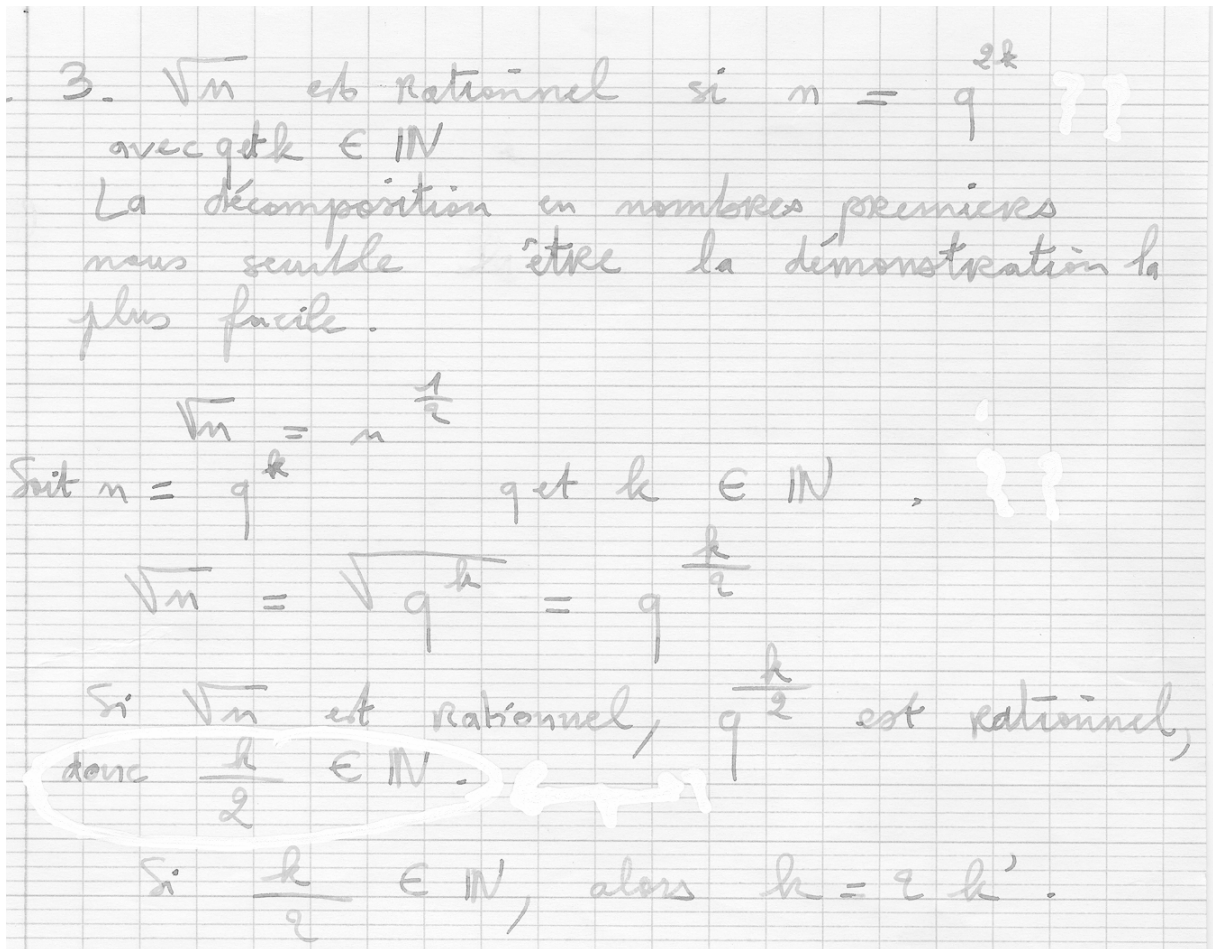 3. √n est rationnel si n = q^2k
avec q et k ∈ IN
La décomposition en nombres premiers
nous semble être la démonstration la
plus facile.
√n = n^(1/2)
Soit n = q^k q et k ∈ IN.
√n = √(q^k) = q^(k/2)
Si √n est rationnel, q^(k/2) est rationnel,
donc k/2 ∈ IN.
Si k/2 ∈ IN, alors k = 2 k'.